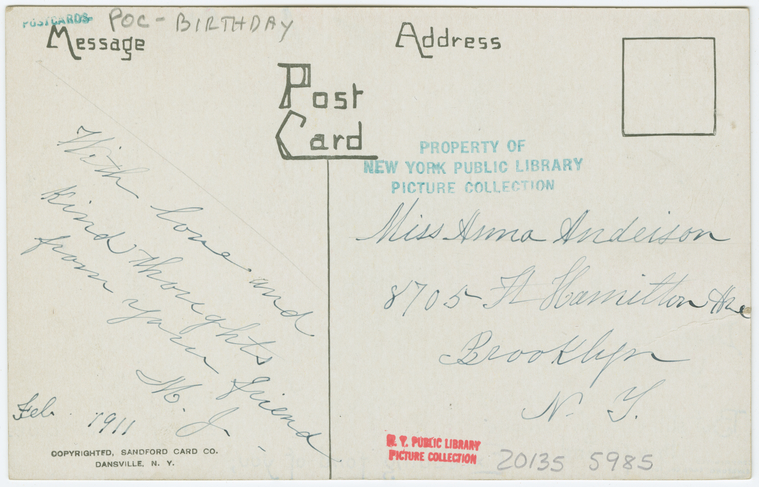 POSTCARDS
POC - BIRTHDAY
Message
Address
Post
Card
PROPERTY OF
NEW YORK PUBLIC LIBRARY
PICTURE COLLECTION
With love and
kind thoughts
from your friend
M. J.
Feb. 1911
Miss Anna Anderson
8705 Ft Hamilton Ave
Brooklyn
N. Y.
COPYRIGHTED, SANDFORD CARD CO.
DANSVILLE, N. Y.
N. Y. PUBLIC LIBRARY
PICTURE COLLECTION
20135 5985